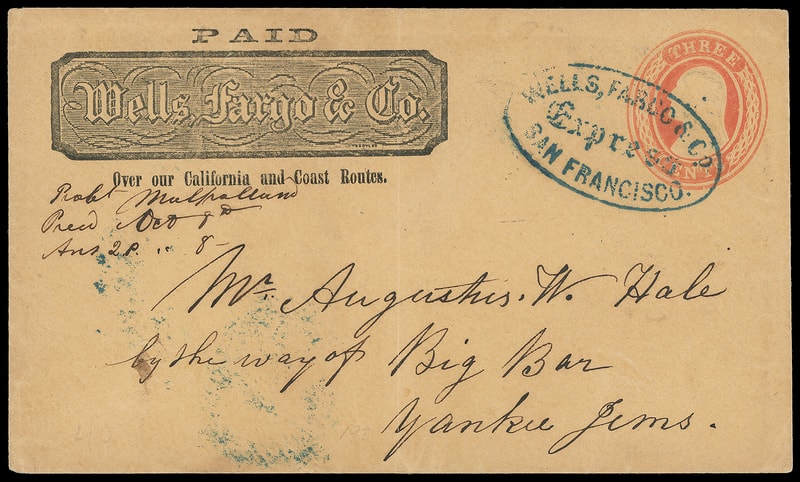 PAID
Wells, Fargo & Co.
Over our California and Coast Routes.
THREE
CENTS
WELLS, FARGO & Co.
Express
SAN FRANCISCO.
Robt Mulholland
Oct 8th
Ans 28 " 8-
Mr. Augustus. W. Hale
by the way of Big Bar
Yankee Jems.